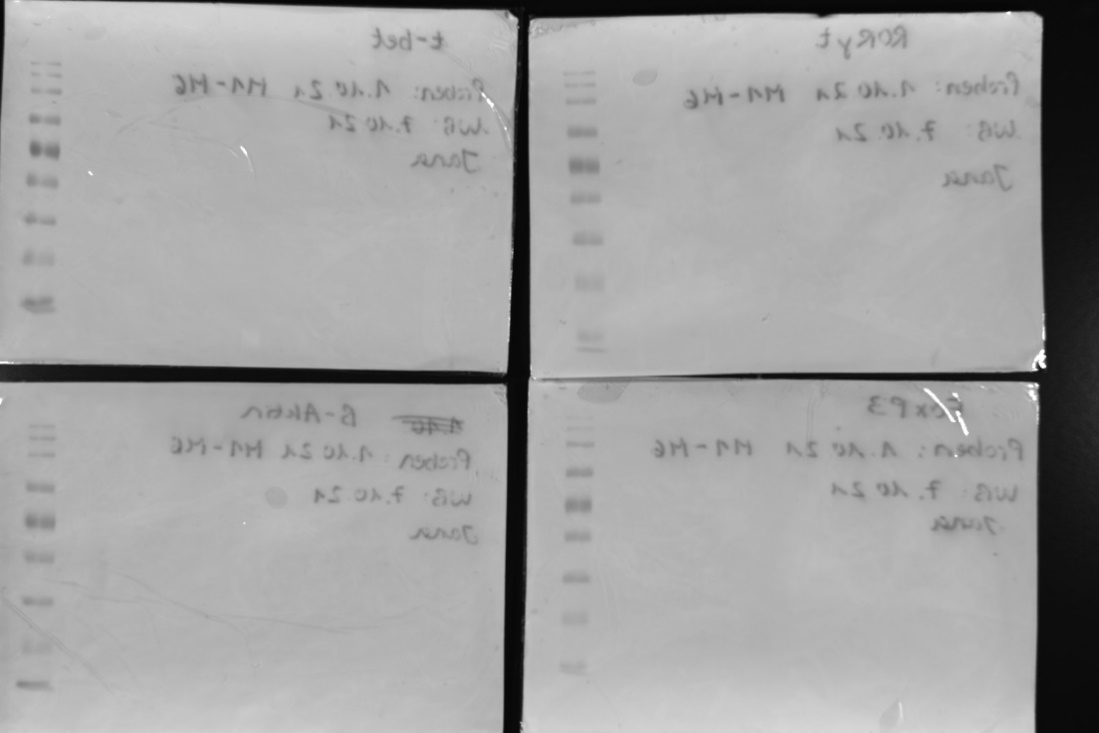 t-bet
Proben: 1.10 21 M1-M6
WB: 7.10 21
Jana
RORγt
Proben: 1.10 21 M1-M6
WB: 7.10 21
Jana
β-Aktin
Proben: 1.10 21 M1-M6
WB: 7.10 21
Jana
FoxP3
Proben: 1.10 21 M1-M6
WB: 7.10 21
Jana